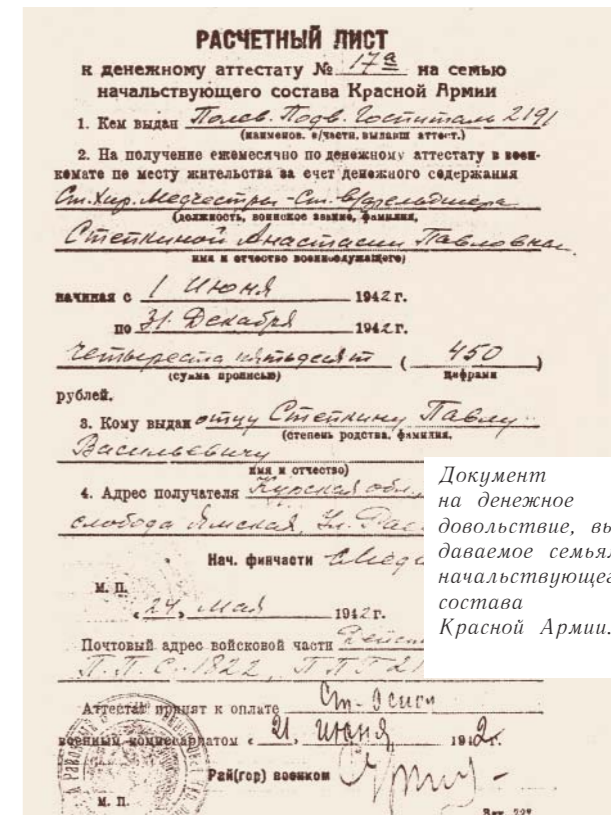 РАСЧЕТНЫЙ ЛИСТ
к денежному аттестату № 17а на семью
начальствующего состава Красной Армии
1. Кем выдан Полев. Подв. Госпиталь 2191
(наименов. в/части, выдавш аттест.)
2. На получение ежемесячно по денежному аттестату в воен-
комате по месту жительства за счет денежного содержания
Ст. Хир. Медсестры - Ст. В/фельдшера
(должность, воинское звание, фамилия,
Степкиной Анастасии Павловны
имя и отчество военнослужащего)
начиная с 1 Июня 1942 г.
по 31 Декабря 1942 г.
четыреста пятьдесят ( 450 )
(сумма прописью) Цифрами
рублей.
3. Кому выдан отцу Степкину Павлу
(степень родства, фамилия,
Васильевичу
имя и отчество)
4. Адрес получателя Курская обл.
слобода Ямская, Ул.
Нач. финчасти
М. П.
« 24 » Мая 1942 г.
Почтовый адрес войсковой части
П.П.С. 1822, ППГ 21
Аттестат принят к оплате
военным комиссариатом « 21 » июня 1942 г.
Рай(гор) военком
М. П.
Зак. 227
Документ
на денежное
довольствие, вы
даваемое семья
начальствующег
состава
Красной Армии.